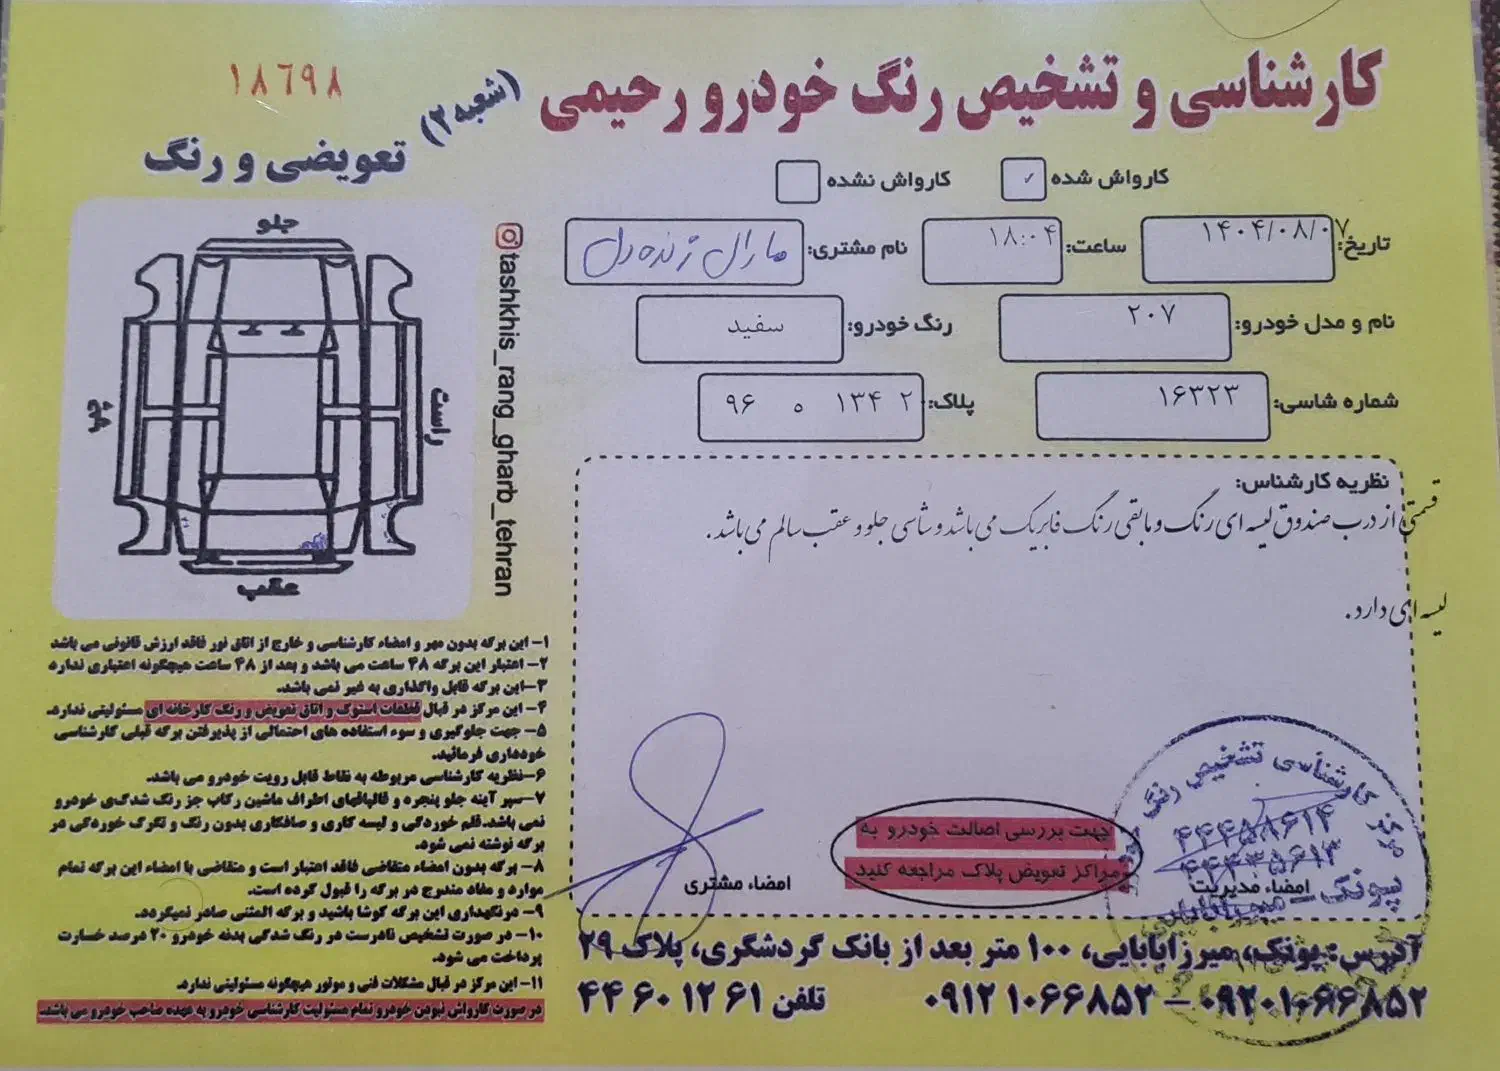 کارشناسی و تشخیص رنگ خودرو رحیمی (شعبه ۲)
۱۸٦۹۸
تعویضی و رنگ
کارواش شده ✓ کارواش نشده
تاریخ: ۱۴۰۴/۰۸/۰۷ ساعت: ۱۸:۰۴ نام مشتری: مارال زنده دل
نام و مدل خودرو: ۲۰۷ رنگ خودرو: سفید
شماره شاسی: ۱۶۳۲۳ پلاک: ۹۶ ه ۱۳۴ ۲
نظریه کارشناس:
قسمتی از درب صندوق لیسه ای رنگ و مابقی رنگ فابریک می باشد و شاسی جلو و عقب سالم می باشد.
لیسه ای دارد.
جلو
راست
عقب
tashkhis_rang_gharb_tehran
۱- این برگه بدون مهر و امضاء کارشناسی و خارج از اتاق نور فاقد ارزش قانونی می باشد
۲- اعتبار این برگه ۴۸ ساعت می باشد و بعد از ۴۸ ساعت هیچگونه اعتباری ندارد
۳-این برگه قابل واگذاری به غیر نمی باشد.
۴- این مرکز در قبال قطعات استوک و اتاق تعویض و رنگ کارخانه ای مسئولیتی ندارد.
۵- جهت جلوگیری و سوء استفاده های احتمالی از پذیرفتن برگه قبلی کارشناسی
خودداری فرمائید.
۶-نظریه کارشناسی مربوطه به نقاط قابل رویت خودرو می باشد.
۷-سپر آینه جلو پنجره و قالپاقهای اطراف ماشین رکاب جز رنگ شدگی خودرو
نمی باشد، قلم خوردگی و لیسه کاری و صافکاری بدون رنگ و تگرگ خوردگی در
برگه نوشته نمی شود.
۸- برگه بدون امضاء متقاضی فاقد اعتبار است و متقاضی با امضاء این برگه تمام
موارد و مفاد مندرج در برگه را قبول کرده است.
۹- درنگهداری این برگه کوشا باشید و برگه المثنی صادر نمیگردد.
۱۰- در صورت تشخیص نادرست در رنگ شدگی بدنه خودرو ۲۰ درصد خسارت
پرداخت می شود.
۱۱- این مرکز در قبال مشکلات فنی و موتور هیچگونه مسئولیتی ندارد.
در صورت کارواش نبودن خودرو تمام مسئولیت کارشناسی خودرو به عهده صاحب خودرو می باشد.
جهت بررسی اصالت خودرو به
مراکز تعویض پلاک مراجعه کنید
امضاء مدیریت
امضاء مشتری
مرکز کارشناسی تشخیص رنگ خودرو
۴۴۴۵۸۶۱۴
۴۴۴۳۵۶۱۳
پونک - میرزابابایی
آدرس: پونک، میرزابابایی، ۱۰۰ متر بعد از بانک گردشگری، پلاک ۲۹
۰۹۲۰۱۰۶۶۸۵۲ - ۰۹۱۲۱۰۶۶۸۵۲ تلفن ۴۴۶۰۱۲۶۱